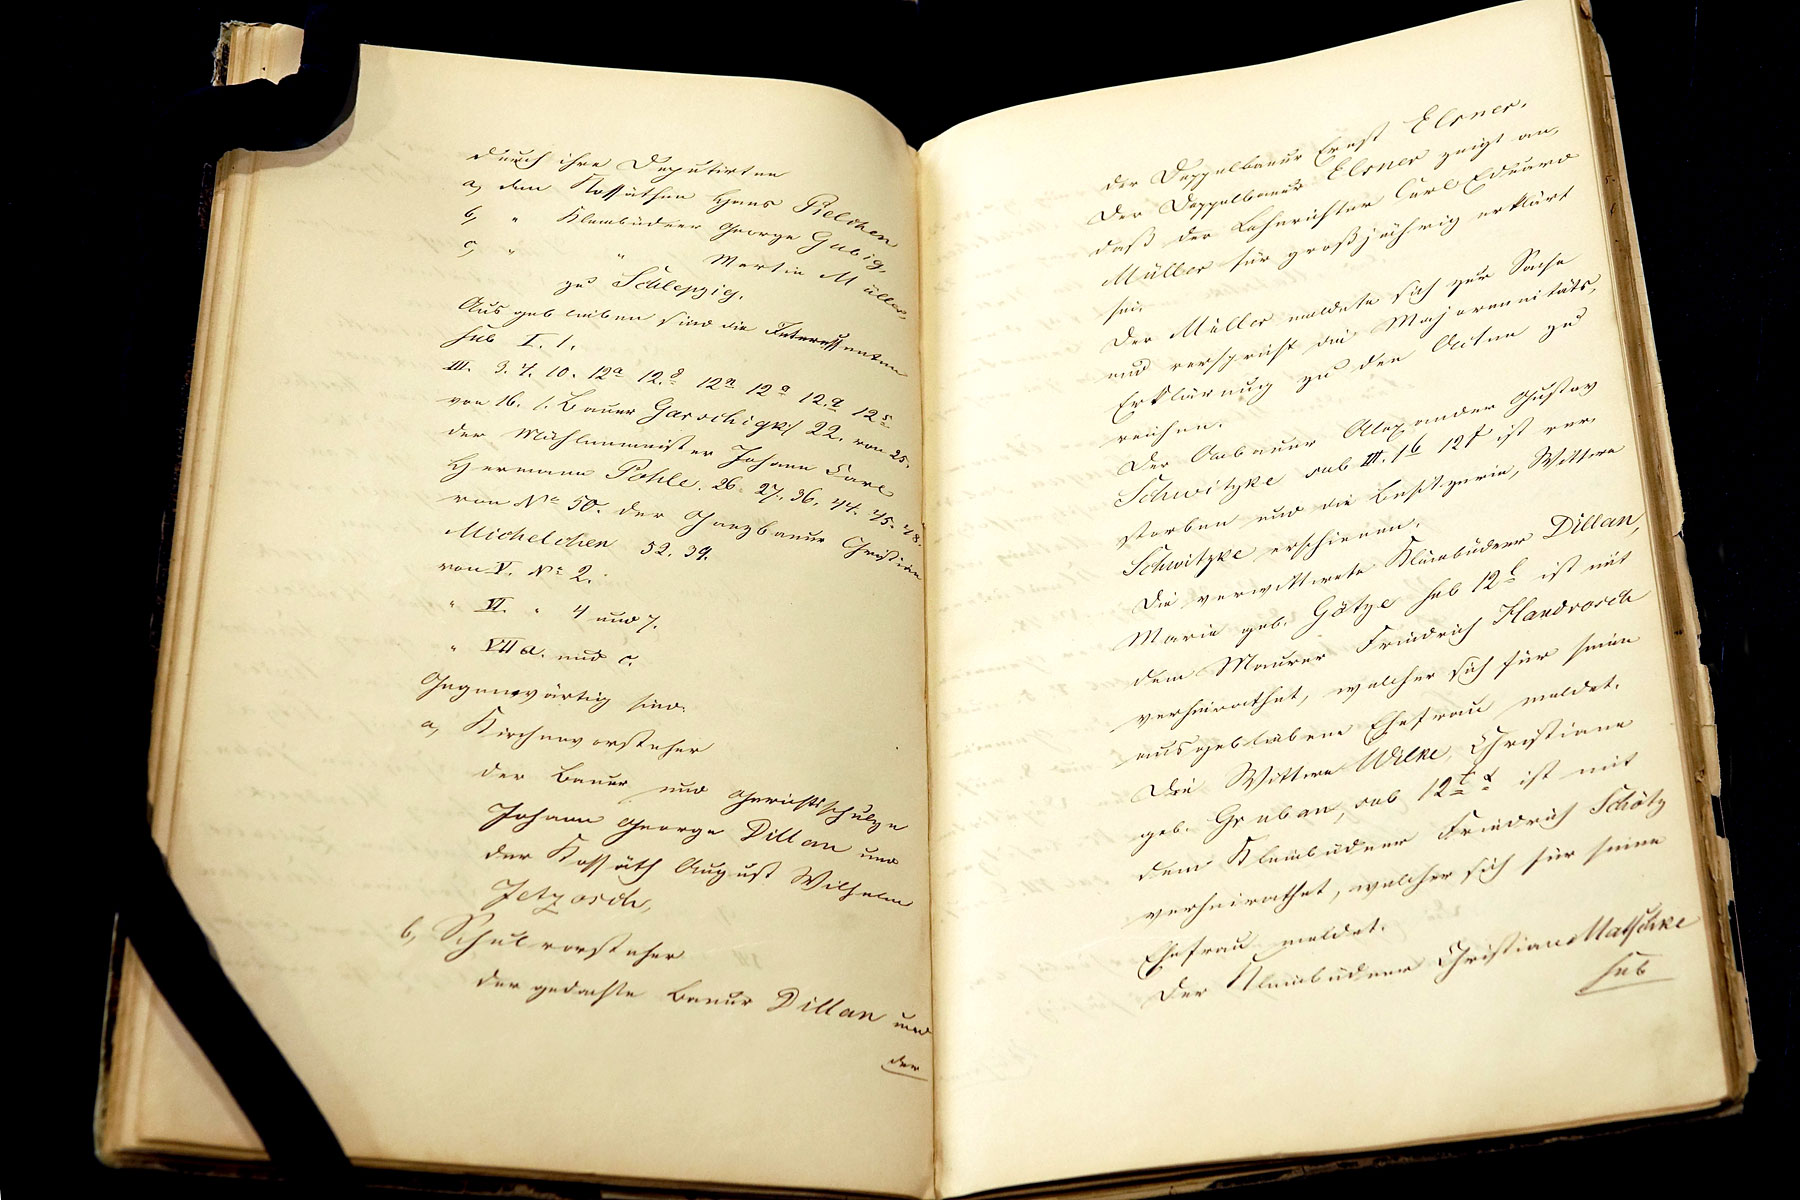 durch ihre Deputirten
a, den Kossäthen Hans Pielchen
b, " Kleinbüdner George Gubig,
c, " " Martin Müller,
zu Schlepzig.
Ausgeblieben sind die Interessenten
sub I. 1.
III. 3. 7. 10. 12a 12.g 12n 12o 12.q 12s
von 16. 1. Bauer Garschigk/ 22. von 25.
der Mühlenmeister Johann Carl
Hermann Pohle. 26. 27. 36. 44. 45. 48.
von No 50. der Ganzbauer Christian
Michelchen 52. 39.
von V. No 2.
" VI. " 4 und 7.
" VII a. und c.
Gegenwärtig sind:
a, Kirchenvorsteher
der Bauer und Gerichtsschulze
Johann George Dillan und
der Kossäth August Wilhelm
Jetzosch,
b, Schulvorsteher
der gedachte Bauer Dillan und
der
der Doppelbauer Ernst Elsner.
Der Doppelbauer Elsner zeigt an,
daß der Lehnrichter Carl Eduard
Müller für großjährig erklärt
sei.
Der Müller meldete sich zur Sache
und verspricht die Majorennitäts-
Erklärung zu den Acten zu
reichen.
Der Anbauer Alexander Gustav
Schwitzke sub III. 16 12f ist ver-
storben und die Besitzerin, Wittwe
Schwitzke erschienen.
Die verwittwete Kleinbüdner Dillan,
Marie geb. Götze sub 12l ist mit
dem Maurer Friedrich Handrosch
verheirathet, welcher sich für seine
ausgebliebene Ehefrau meldet.
Die Wittwe Wilke, Christiane
geb. Gruban, sub 12t ist mit
dem Kleinbüdner Friedrich Schötz
verheirathet, welcher sich für seine
Ehefrau meldet.
Der Kleinbüdner Christian Matschke
sub